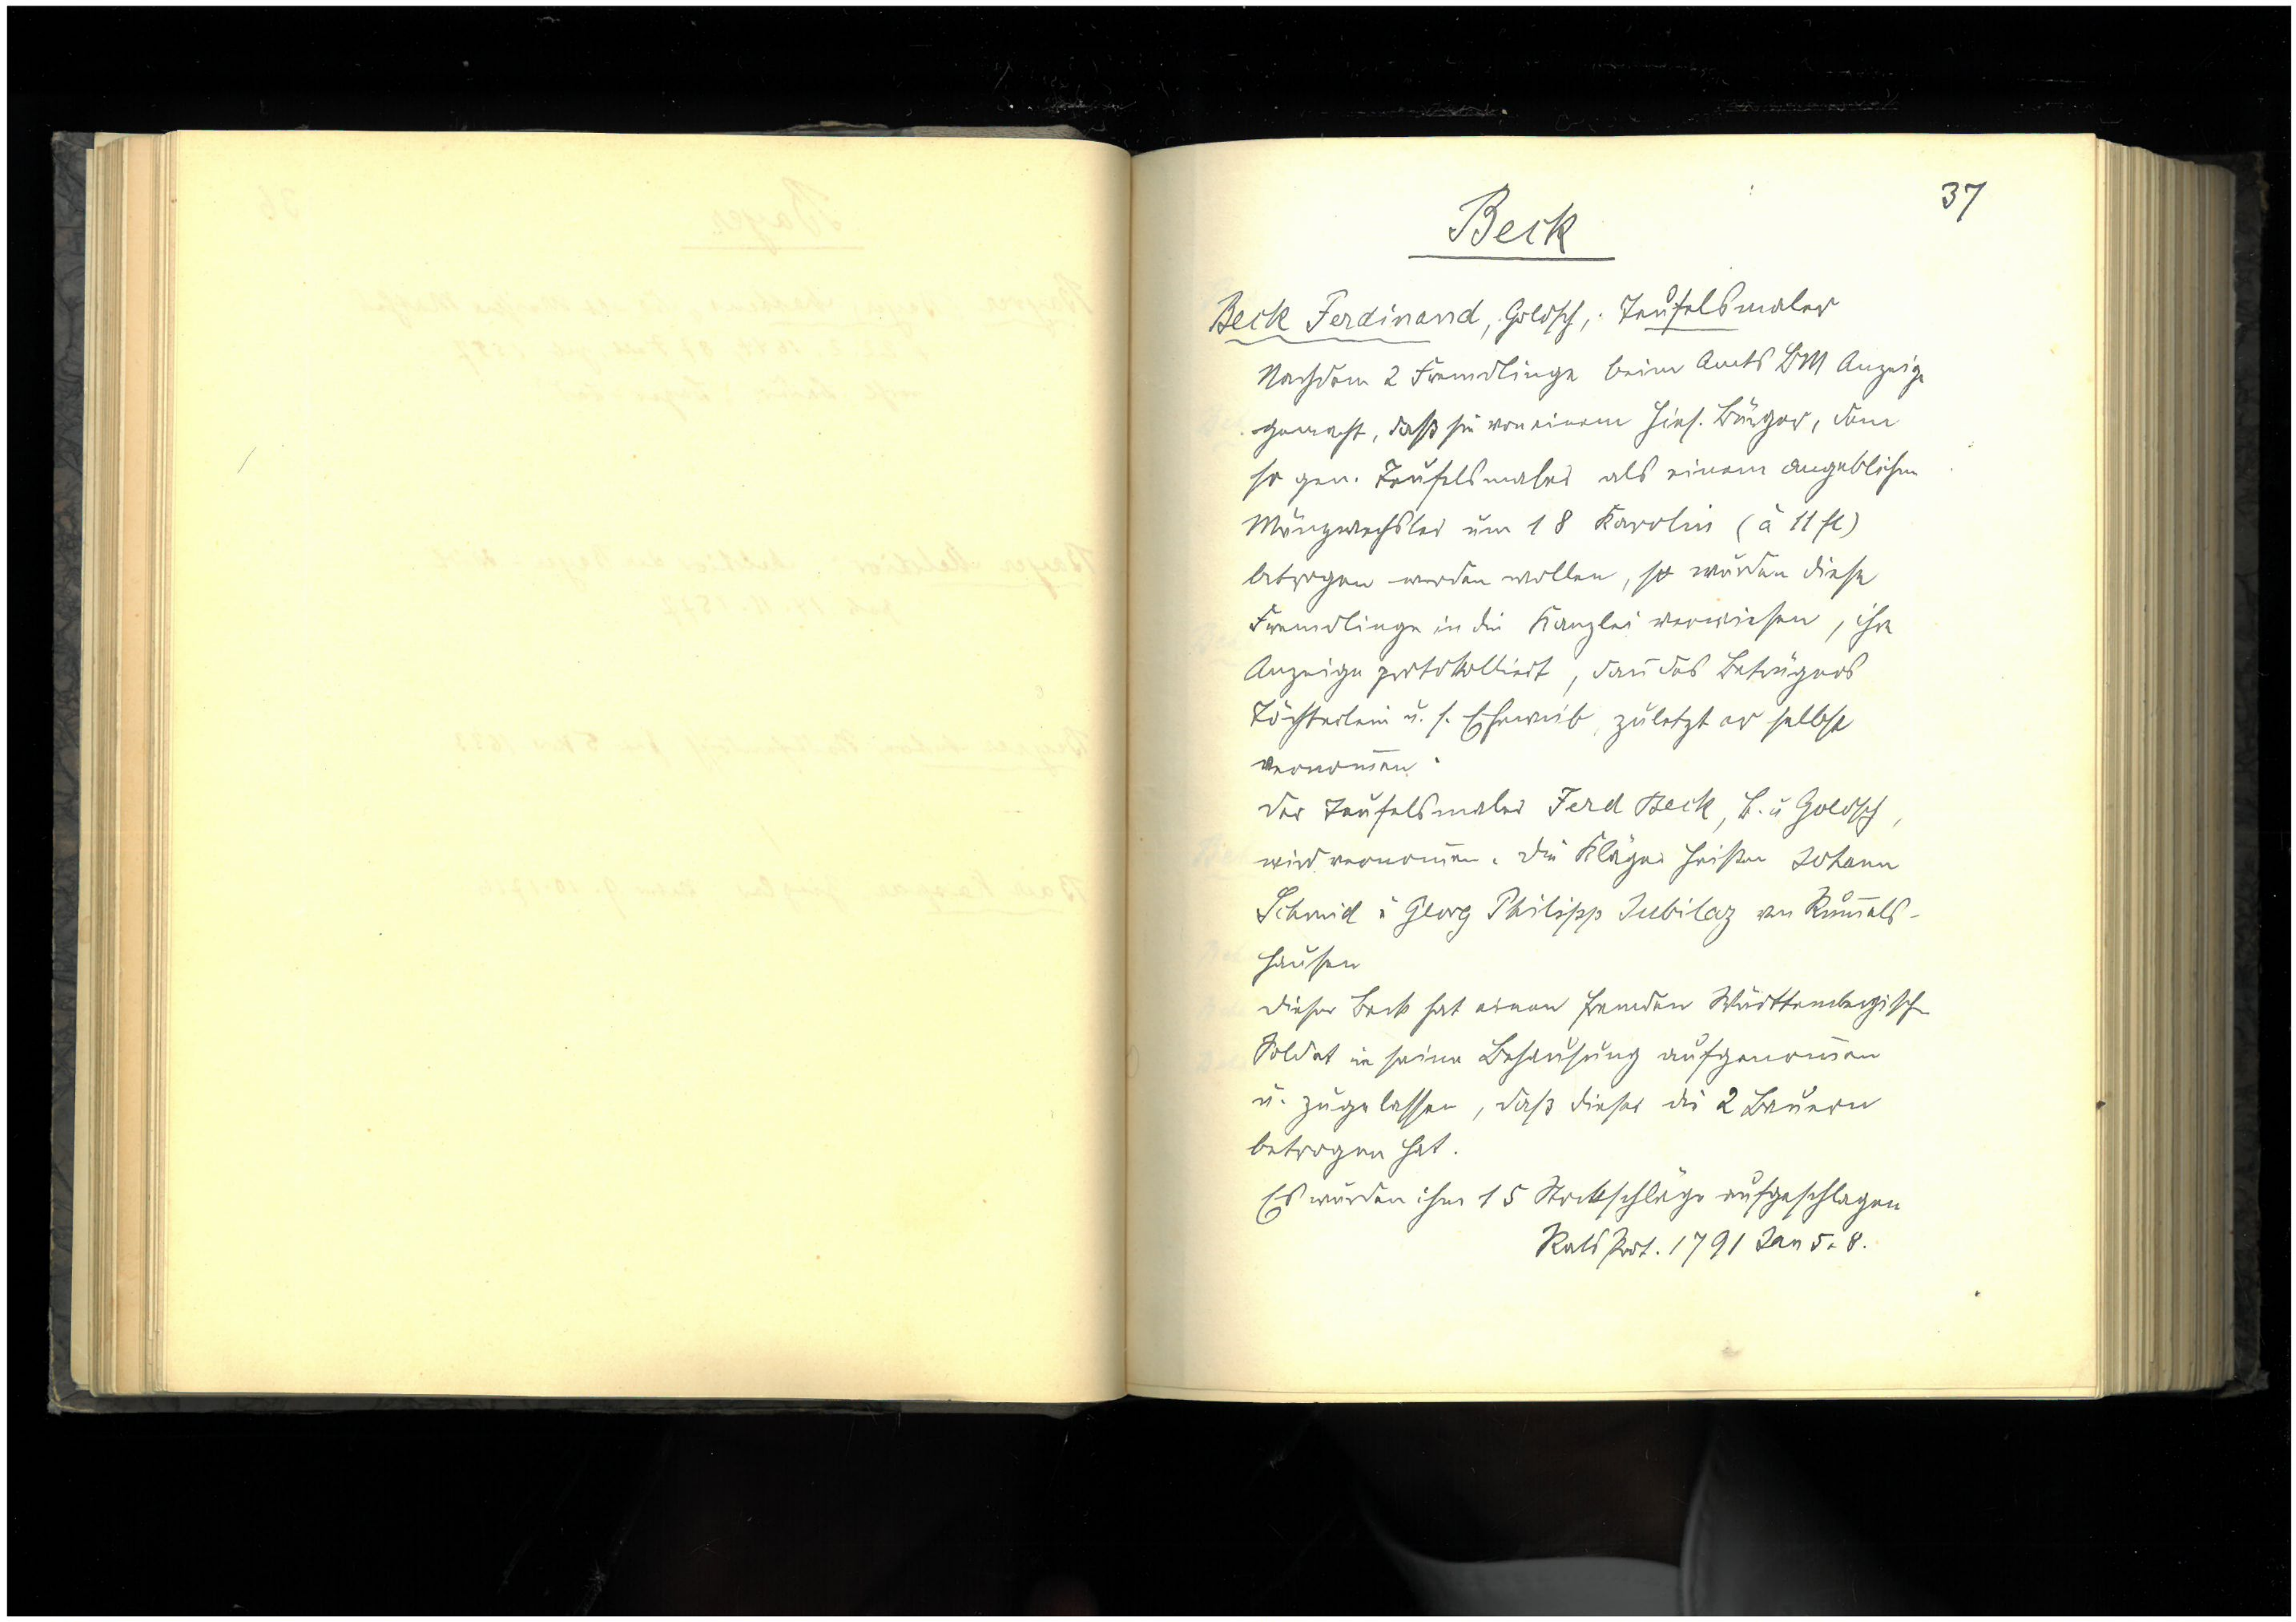 37
Beck
Beck Ferdinand, Goldsch, Teufelsmaler
Nachdem 2 Fremdlinge beim Amts BM Anzeige
gemacht, daß sie von einem hies. Bürger, dem
so gen. Teufelsmaler als einem angeblichen
Münzwechsler um 18 Karolin (à 11 fl)
betrogen werden wollen, so wurden diese
Fremdlinge in die Kanzlei verwiesen, ihre
Anzeige protokolliert, dañ des Betrügers
Töchterlein u. s. Eheweib, zuletzt er selbst
vernom̄en.
Der Teufelsmaler Ferd Beck, B. u Goldsch,
wird vernom̄en. Die Kläger heißen Johann
Schmid u Georg Philipp Jubilaz von Rum̄els-
hausen
Dieser Beck hat einen fremden Württembergisch
Soldat in seine Behausung aufgenom̄en
u. zugelassen, daß dieser die 2 Bauern
betrogen hat.
Es wurden ihm 15 Stockschläge aufgeschlagen
Rats Prot. 1791 Jan 5. 8.